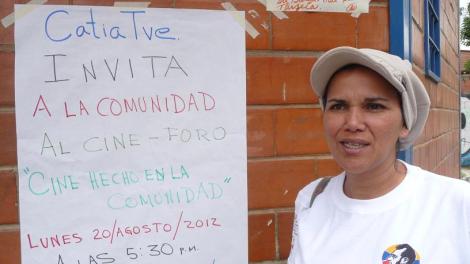 Catia Tve.
INVITA
A LA COMUNIDAD
AL CINE-FORO
"CINE HECHO EN LA
COMUNIDAD"
LUNES 20/AGOSTO/2012
A LAS 5:30 P.M.